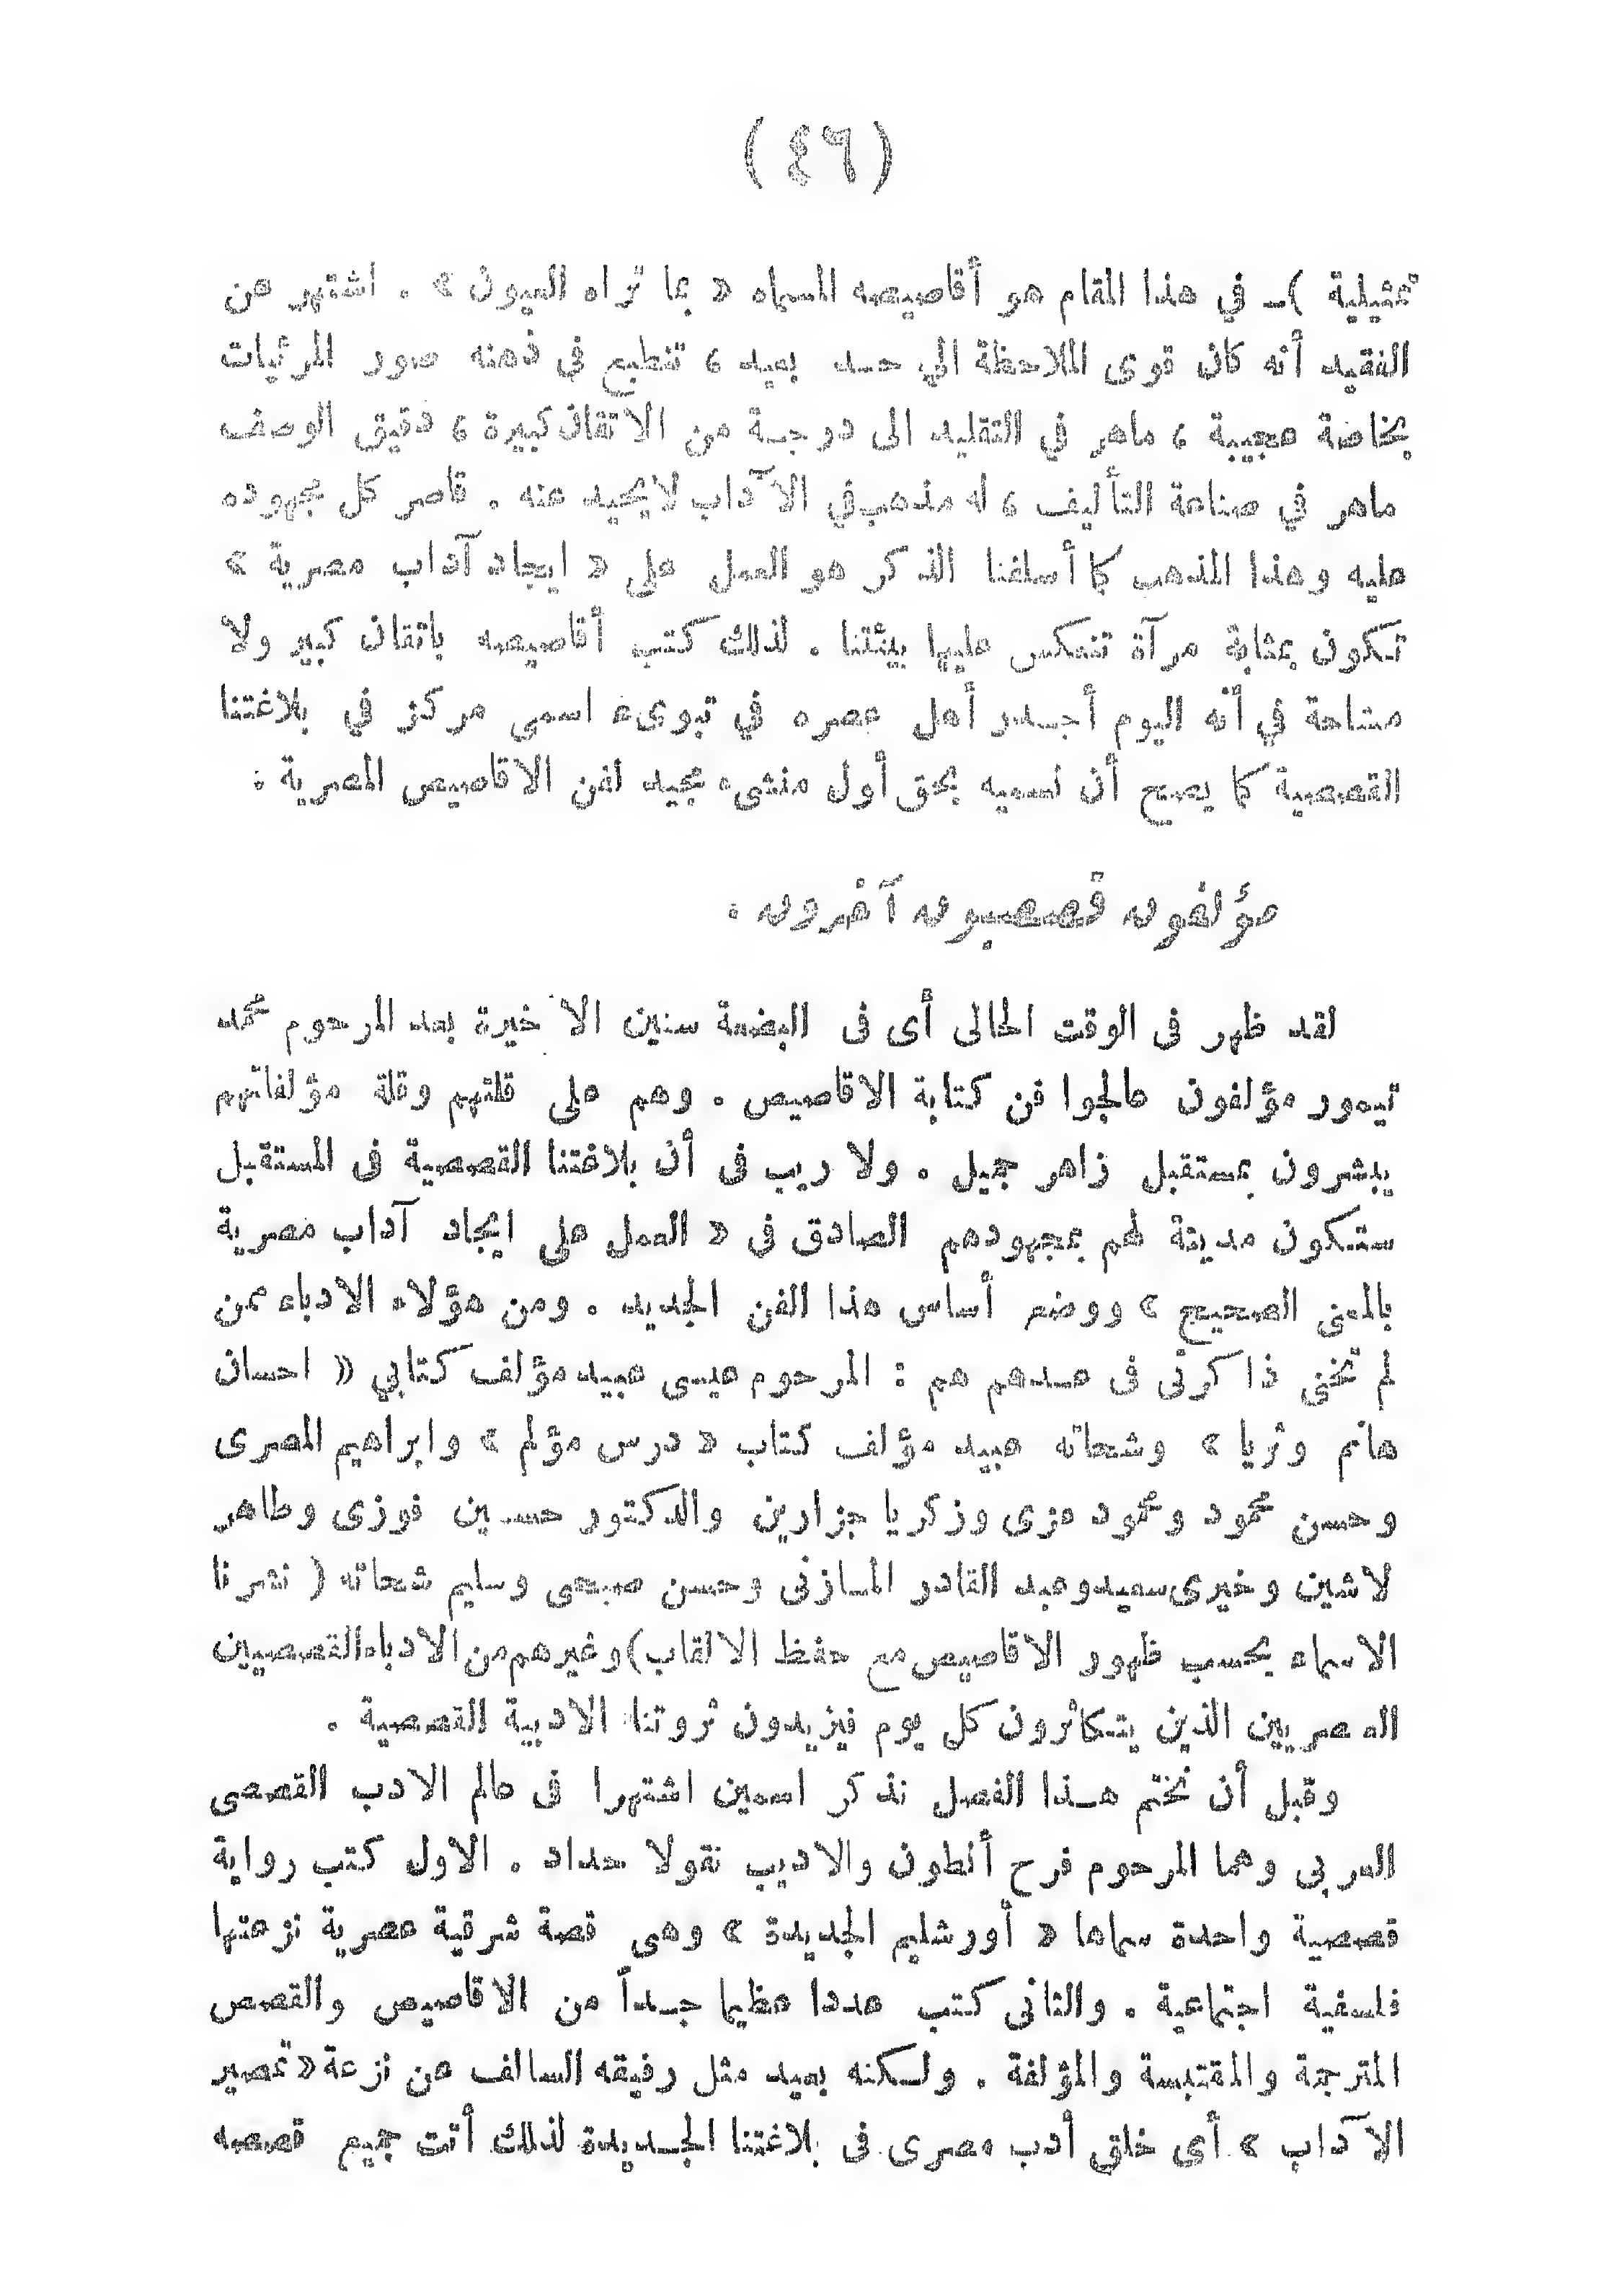 (٤٦)
تمثيلية )ـ في هذا المقام هو أقاصيصه المسماه « بما تراه العيون » . اشتهر عن
الفقيد أنه كان قوى الملاحظة الي حد بعيد ، تنطبع في ذهنه صور المرئيات
بخاصة عجيبة ، ماهر في التقليد الى درجة من الاتقان كبيرة ، دقيق الوصف
ماهر في صناعة التأليف ، له مذهب في الآداب لايحيد عنه . قاصر كل مجهوده
عليه وهذا المذهب كما أسلفنا الذكر هو العمل على « ايجاد آداب مصرية »
تكون بمثابة مرآة تنعكس عليها بيئتنا . لذلك كتب أقاصيصه باتقان كبير ولا
مشاحة في أنه اليوم أجدر أهل عصره في تبوىء اسمى مركز في بلاغتنا
القصصية كما يصح أن نسميه بحق أول منشىء مجيد لفن الاقاصيص المصرية :
مؤلفون قصصيون آخرون .
لقد ظهر فى الوقت الحالى أى فى البضعة سنين الاخيرة بعد المرحوم محمد
تيمور مؤلفون عالجوا فن كتابة الاقاصيص . وهم على قلتهم وقلة مؤلفاتهم
يبشرون بمستقبل زاهر جميل . ولا ريب فى أن بلاغتنا القصصية فى المستقبل
ستكون مدينة لهم بمجهودهم الصادق فى « العمل على ايجاد آداب مصرية
بالمعنى الصحيح » ووضع أساس هذا الفن الجديد . ومن هؤلاء الادباء ممن
لم تخنى ذاكرتى فى عدهم هم : المرحوم عيسى عبيد مؤلف كتابي « احسان
هانم وثريا » وشحاته عبيد مؤلف كتاب « درس مؤلم » وابراهيم المصرى
وحسن محمود ومحمود عزى وزكريا جزارين والدكتور حسين فوزى وطاهر
لاشين وخيرى سعيد وعبد القادر المازنى وحسن صبحى وسليم شحاته ( نشرنا
الاسماء بحسب ظهور الاقاصيص مع حفظ الالقاب) وغيرهم من الادباء القصصيين
المصريين الذين يتكاثرون كل يوم فيزيدون ثروتنا الادبية القصصية .
وقبل أن نختم هذا الفصل نذكر اسمين اشتهرا فى عالم الادب القصصى
العربى وهما المرحوم فرح أنطون والاديب نقولا حداد . الاول كتب رواية
قصصية واحدة سماها « أورشليم الجديدة » وهى قصة شرقية عصرية نزعتها
فلسفية اجتماعية . والثانى كتب عددا عظيما جداً من الاقاصيص والقصص
المترجمة والمقتبسة والمؤلفة . ولكنه بعيد مثل رفيقه السالف عن نزعة «تمصير
الآداب » أى خلق أدب مصرى فى بلاغتنا الجديدة لذلك أتت جميع قصصه